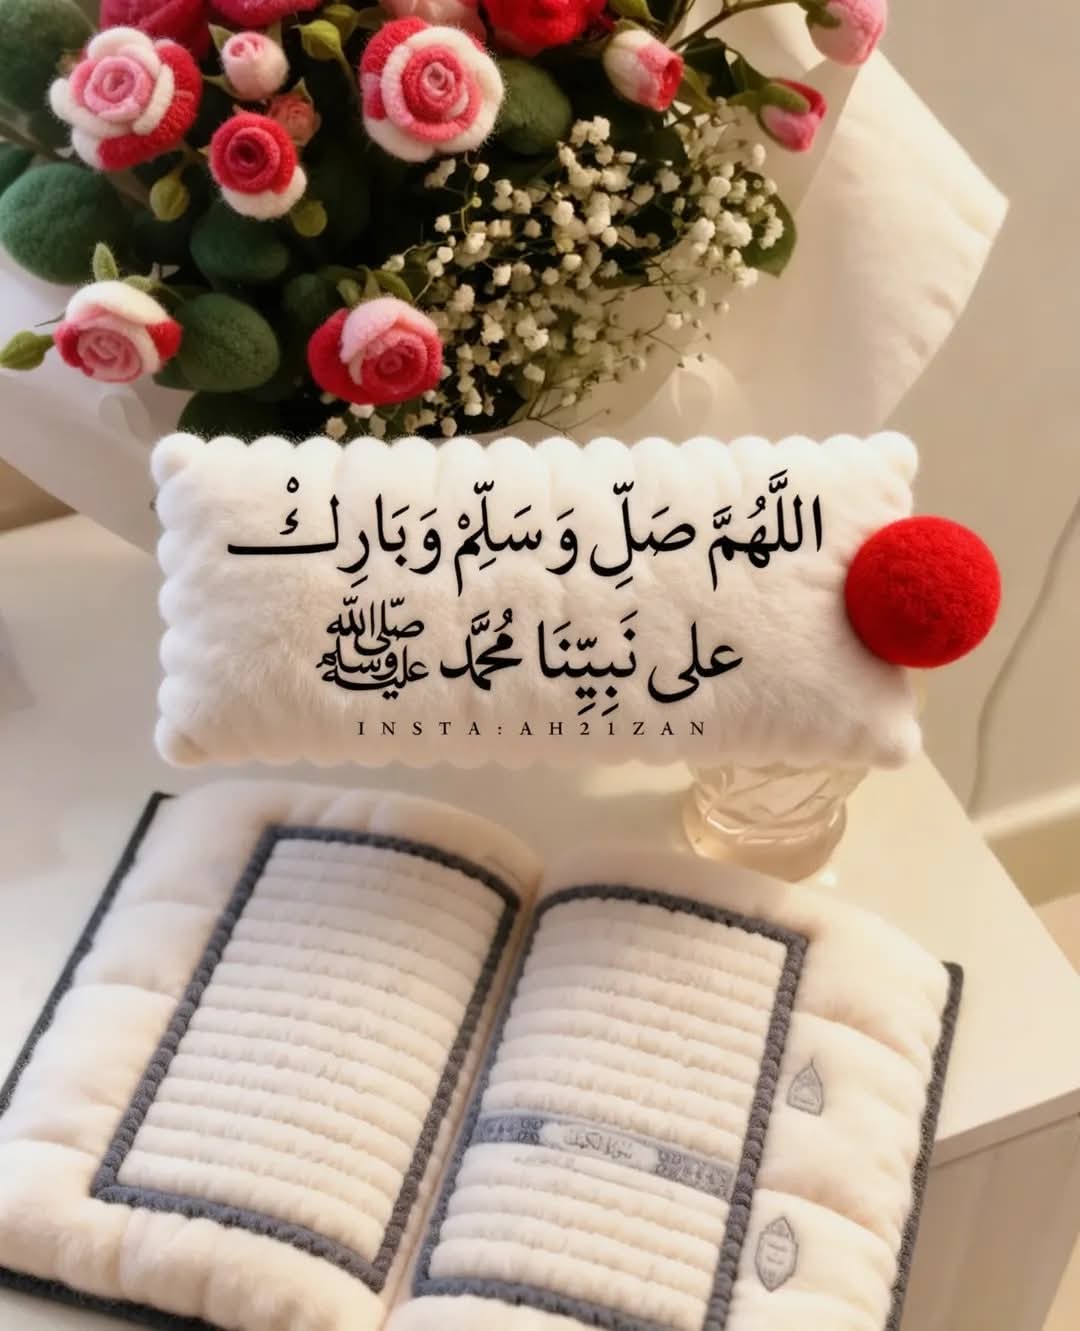 اللَّهُمَّ صَلِّ وَسَلِّمْ وَبَارِكْ
على نَبِيِّنَا مُحمَّد ﷺ
INSTA:AH21ZAN